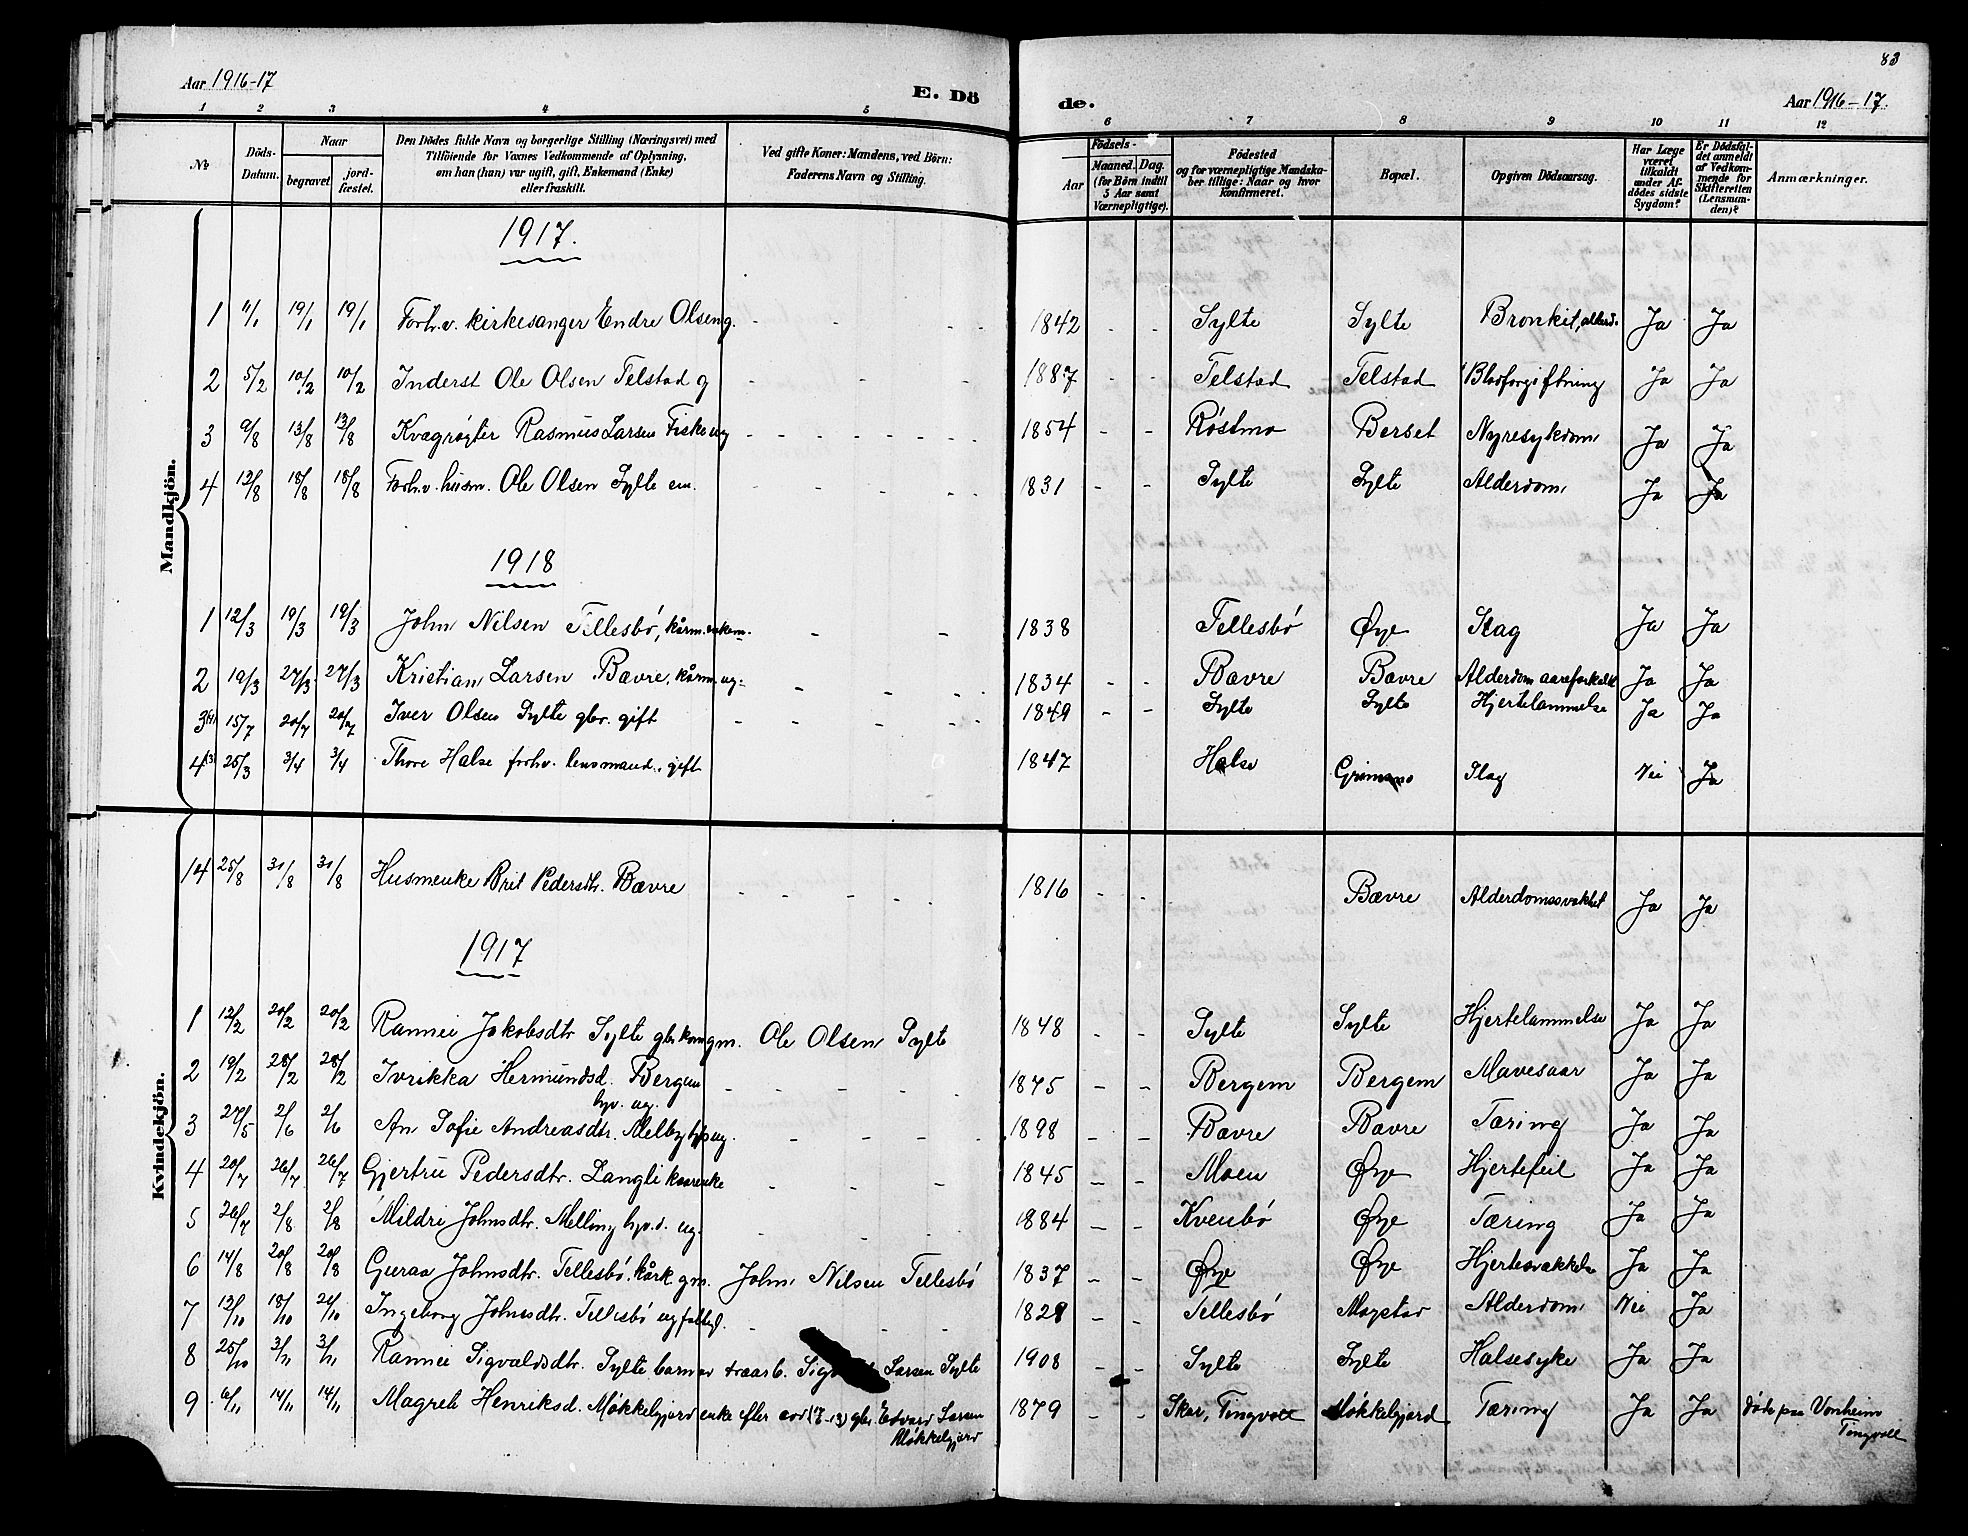 83
Aar 1916-17
E. Dö
de.
Aar 1916-17.
1 2 3 4 5 6 7 8 9 10 11 12
No
Döds-Datum.
Naar
begravet
jord-fæstet.
Den Dödes fulde Navn og borgerlige Stilling (Næringsvei) med
Tilföiende for Voxnes Vedkommende af Oplysning,
om han (hun) var ugift, gift, Enkemand (Enke)
eller fraskilt.
Ved gifte Koner: Mandens, ved Börn:
Faderens Navn og Stilling.
Födsels-
Aar
Maaned. Dag.
(for Börn indtil
5 Aar samt
Værnepligtige).
Födested
og for værnepligtige Mandska-
ber tillige: Naar og hvor
konfirmeret.
Bopæl.
Opgiven Dödsaarsag.
Har Læge
været
tilkaldt
under Af-
dödes sidste
Sygdom?
Er Dödsfal-
det anmeldt
af Vedkom-
mende for
Skifteretten
(Lensman-
den)?
Anmærkninger.
Mandkjön.
1917.
1 11/1 19/1 19/1 Forh.v. kirkesanger Endre Olsen g. 1842 Sylte Sylte Bronkit, alderd. Ja Ja
2 5/2 10/2 10/2 Inderst Ole Olsen Telstad g 1887 Telstad Telstad Blodforgiftning Ja Ja
3 9/8 13/8 13/8 Kvægrøgter Rasmus Larsen Fiske ug 1854 Røstmo Berset Nyresykdom Ja Ja
4 12/8 18/8 18/8 Forh.v. husm. Ole Olsen Sylte em. 1831 Sylte Sylte Alderdom Ja Ja
1918
1 12/3 19/3 19/3 John Nilsen Tellesbø, kårm. enkem. 1838 Tellesbø Øye Slag Ja Ja
2 19/3 27/3 27/3 Kristian Larsen Bævre, kårm. ug. 1834 Bævre Bævre Alderdom aareforkalk. Ja Ja
3(4) 15/7 20/7 20/7 Iver Olsen Sylte gbr. gift 1849 Sylte Sylte Hjertelammelse Ja Ja
4(3) 25/3 3/4 3/4 Thore Halse forhv. lensmand, gift 1847 Halse Grimsmo Slag Nei Ja
Kvindekjön.
14 25/8 31/8 31/8 Husmenke Brit Pedersdtr. Bævre 1816 Bævre Alderdomssvakhet Ja Ja
1917
1 12/2 20/2 20/2 Rannei Jakobsdtr Sylte gbr.kone gm. Ole Olsen Sylte 1848 Sylte Sylte Hjertelammelse Ja Ja
2 19/2 28/2 28/2 Ivrikka Hermundsd. Bergem 1875 Bergem Bergem Mavesaar Ja Ja
hp. ug.
3 27/5 2/6 2/6 An Sofie Andreasdtr. Melby hp ug. 1898 Bævre Bævre Tæring Ja Ja
4 20/7 26/7 26/7 Gjertru Pedersdtr. Langli kaarenke 1845 Moen Øye Hjertefeil Ja Ja
5 26/7 2/8 2/8 Mildri Johnsdtr. Melling hp.d. ug. 1884 Kvenbø Øye Tæring Ja Ja
6 14/8 20/8 20/8 Guraa Johnsdtr. Tellesbø. kårk gm. John Nilsen Tellesbø 1837 Øye Øye Hjertesvækkelse Ja Ja
7 12/10 18/10 21/10 Ingeborg Johnsdtr. Tellesbø ug fattigl. 1828 Tellesbø Mogstad Alderdom Nei Ja
8 25/10 3/11 3/11 Rannei Sigvaldsdtr. Sylte barn av Larsen Sylte 1908 Sylte Sylte Halsesyke Ja Ja
9 6/11 14/11 14/11 Magreti Henriksd. Møkkelgjerd enke efter gbr. Edvard Larsen 1879 Skar, Tingvoll Møkkelgjerd Tæring Ja Ja døde paa Vonheim
Møkkelgjerd Tingvoll